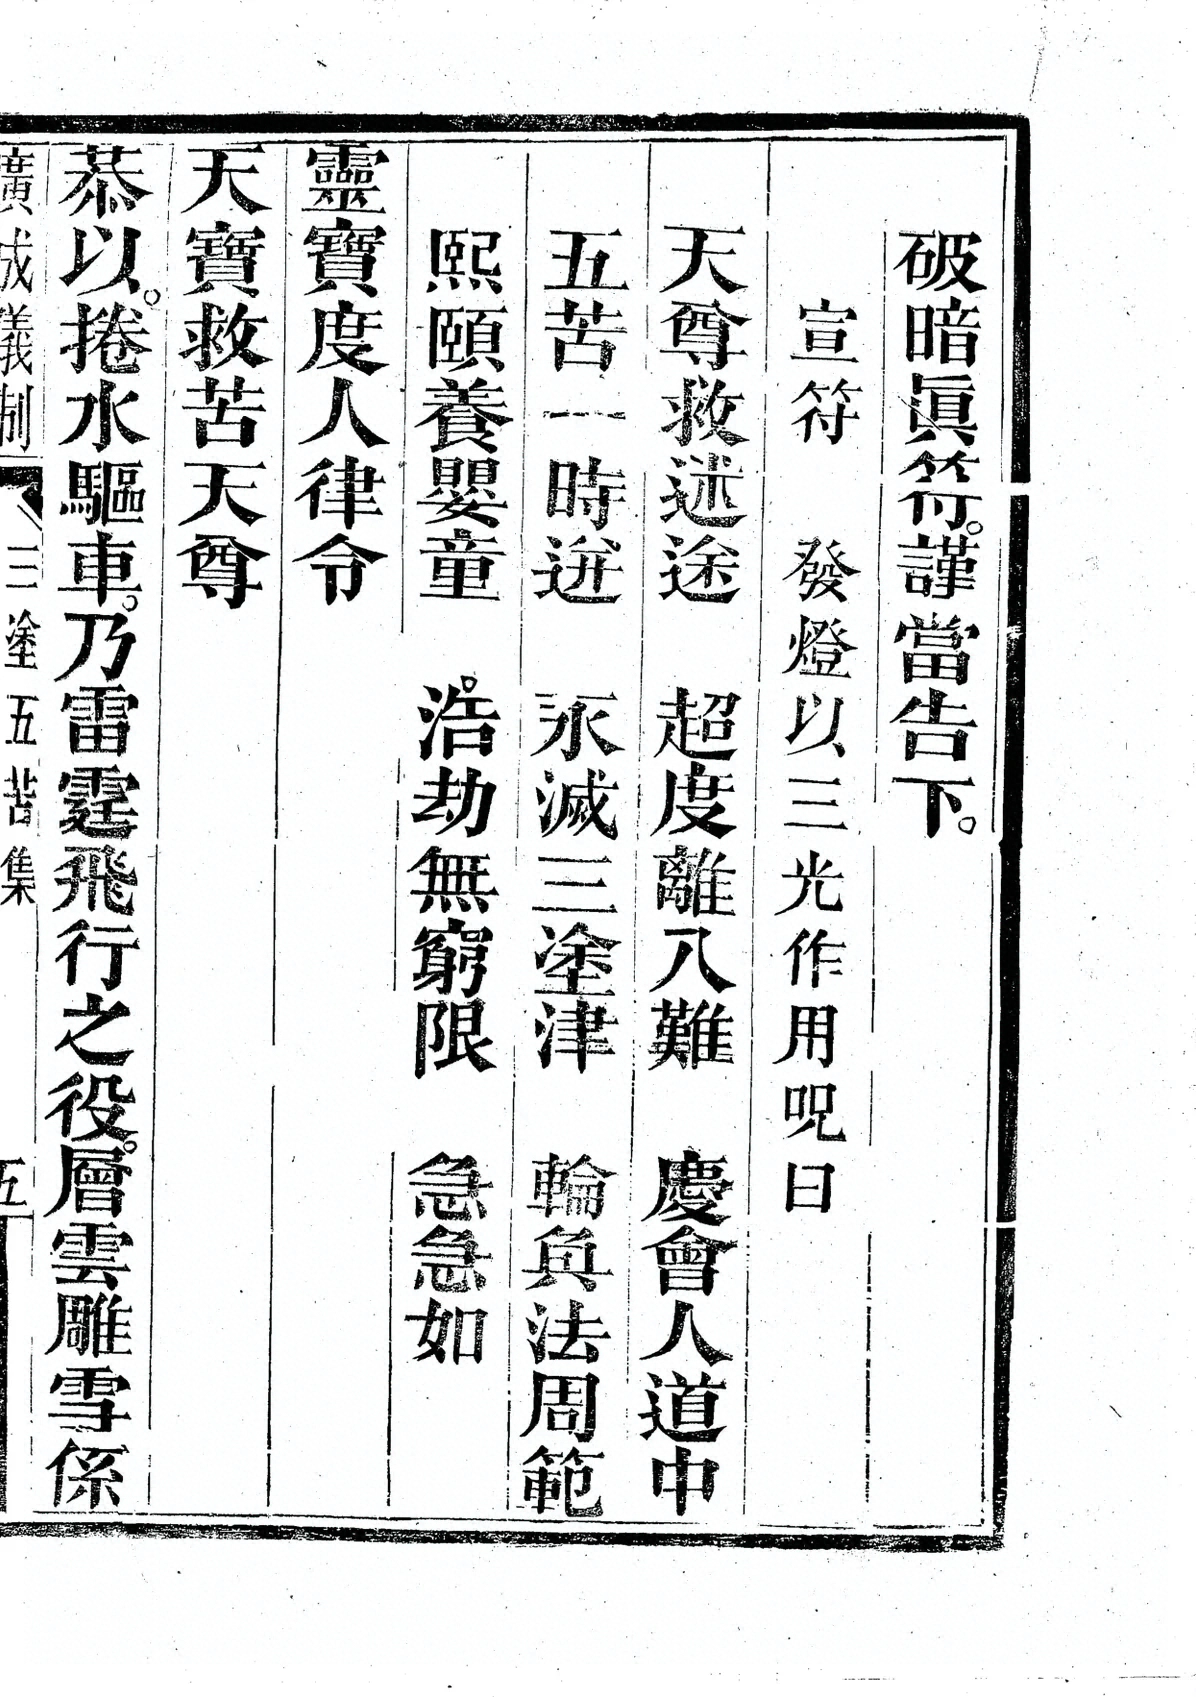 破暗眞符。謹當告下。
宣符　發燈以三光作用呪曰
天尊救迷途　超度離八難　慶會人道中
五苦一時迸　永滅三塗津　輪兵法周範
熙頤養嬰童　浩劫無窮限　急急如
靈寶度人律令
天寶救苦天尊
恭以。捲水驅車。乃雷霆飛行之役。層雲雕雪係
廣成儀制　三塗五苦集　五